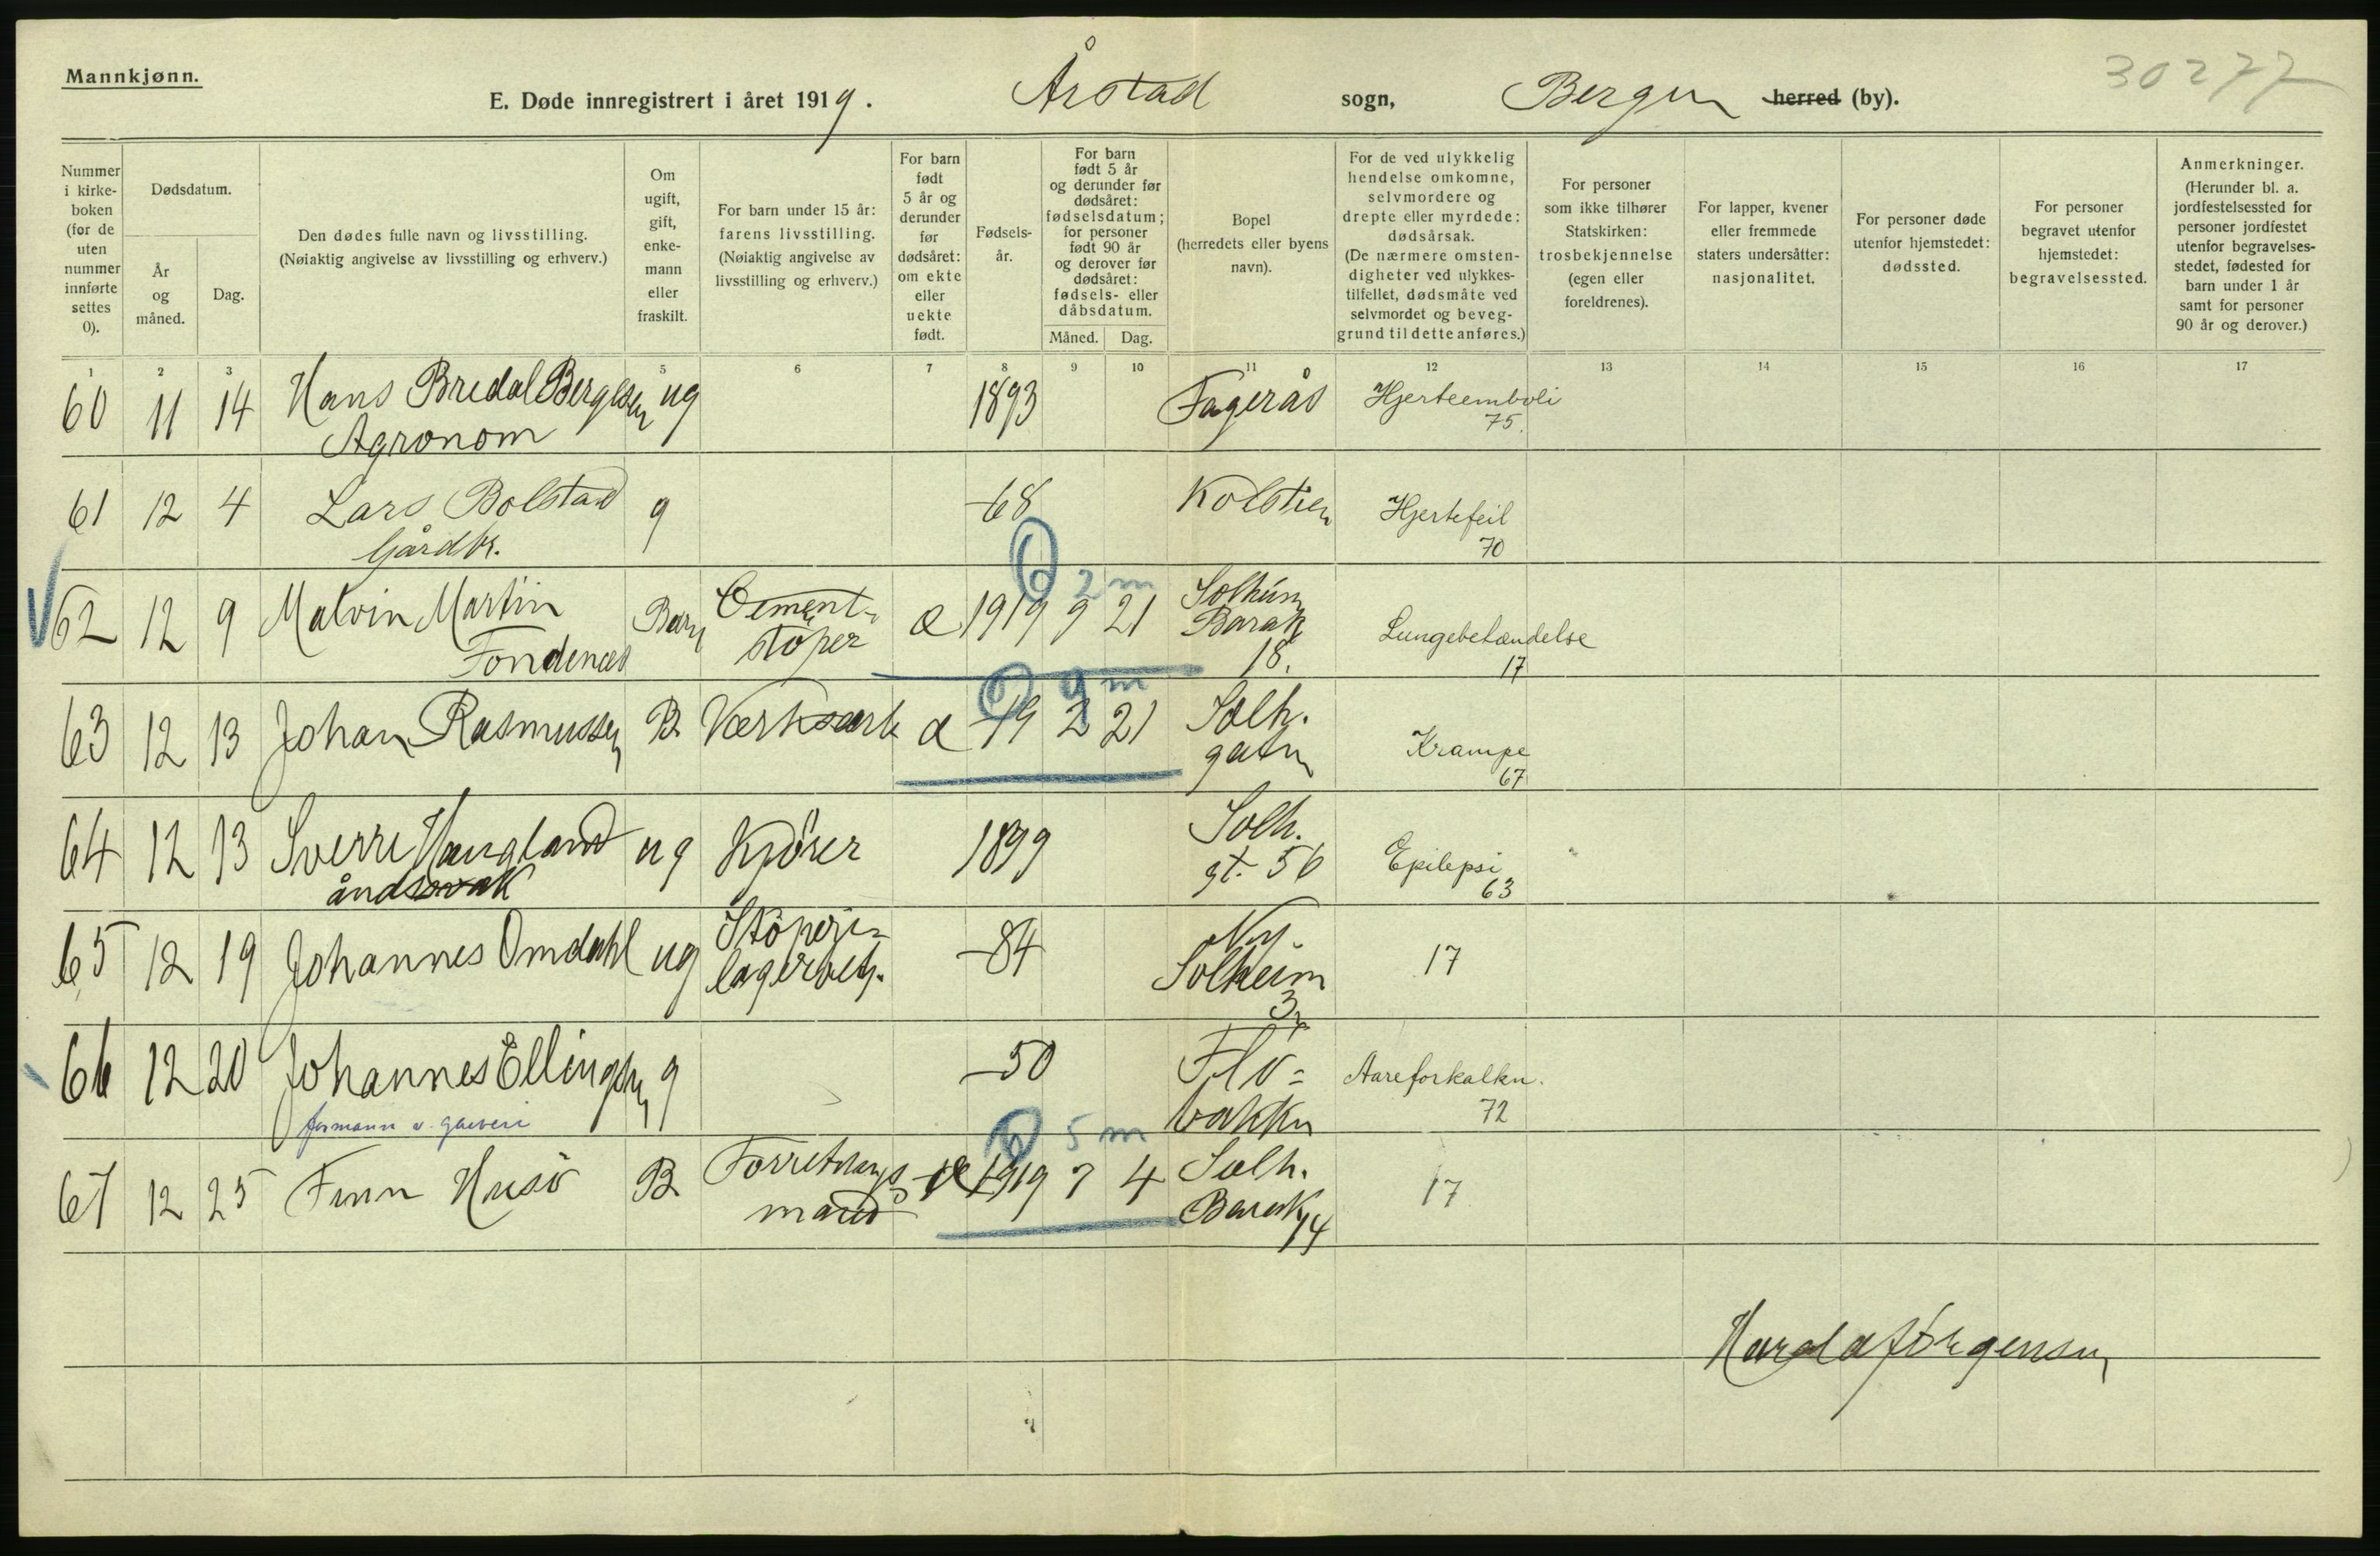 Mannkjønn.
30277
E. Døde innregistrert i året 1919. Årstad sogn, Bergen herred (by).
Nummer i kirke- boken (før de uten nummer innførte settes 0).
Dødsdatum.
År og måned.
Dag.
Den dødes fulle navn og livsstilling.
(Nøiaktig angivelse av livsstilling og erhverv.)
Om ugift, gift, enke- mann eller fraskilt.
For barn under 15 år: farens livsstilling. (Nøiaktig angivelse av livsstilling og erhverv.)
For barn født 5 år og derunder før dødsåret: om ekte eller uekte født.
Fødsels- år.
For barn født 5 år og derunder før dødsåret: fødselsdatum; for personer født 90 år og derover før dødsåret: fødsels- eller dåbsdatum.
Måned. Dag.
Bopel (herredets eller byens navn).
For de ved ulykkelig hendelse omkomne, selvmordere og drepte eller myrdede: dødsårsak. (De nærmere omsten- digheter ved ulykkes- tilfellet, dødsmåte ved selvmordet og beveg- grund til dette anføres.)
For personer som ikke tilhører Statskirken: trosbekjennelse (egen eller foreldrenes).
For lapper, kvener eller fremmede staters undersåtter: nasjonalitet.
For personer døde utenfor hjemstedet: dødssted.
For personer begravet utenfor hjemstedet: begravelsessted.
Anmerkninger. (Herunder bl. a. jordfestelsessted for personer jordfestet utenfor begravelses- stedet, fødested for barn under 1 år samt for personer 90 år og derover.)
1 2 3 5 6 7 8 9 10 11 12 13 14 15 16 17
60 11 14 Hans Bredal Bergesen ug 1893 Fagerås Hjerteemboli
Agronom 75.
61 12 4 Lars Bolstad g -68 Kolstien Hjertefeil
Gårdbr. 70
6 2 m
62 12 9 Malvin Martin Barn Cement- æ 1919 9 21 Solheim Lungebetændelse
Fondenæs støper Barak 17
18.
6 9 m
63 12 13 Johan Rasmussen B Værksarb æ -19 2 21 Solh. Krampe
gaten 67
64 12 13 Sverre Haugland ug Kjører 1899 Solh. Epilepsi
åndssvak gt. 56 63
65 12 19 Johannes Omdahl ug Støperi- -84 Ny 17
lagerbetj. Solheim
3
66 12 20 Johannes Ellingsen g -50 Flø- Aareforkalkn.
formann v. garveri bakken 72
6 5 m
67 12 25 Finn Husø B Forretnings æ 1919 7 4 Solh. 17
mand Barak 14
Harald Jørgensen